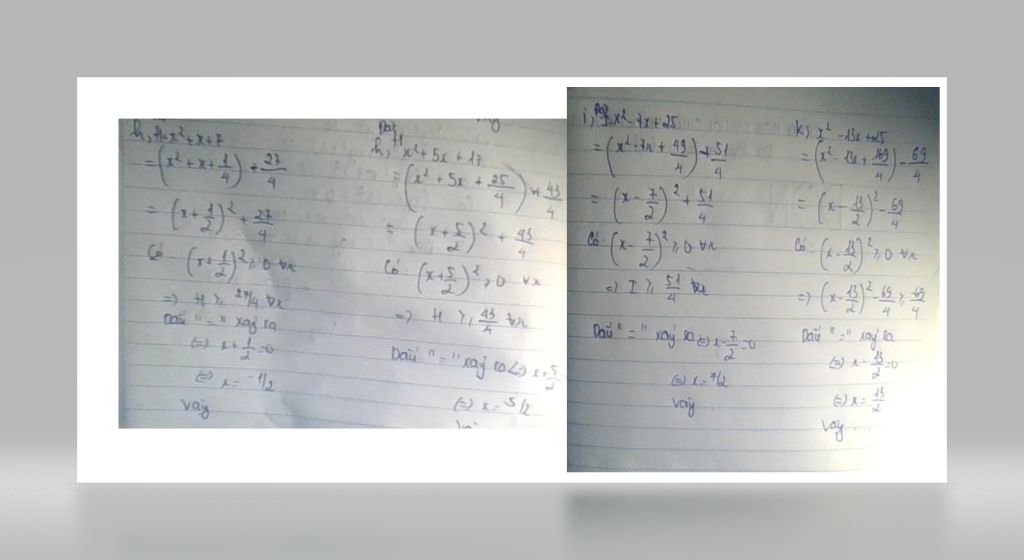 h, H = x² + x + 7
= (x² + x + 1/4) + 27/4
= (x + 1/2)² + 27/4
Có: (x + 1/2)² ≥ 0 ∀x
=> H ≥ 27/4 ∀x
Dấu "=" xảy ra
<=> x + 1/2 = 0
<=> x = -1/2
Vậy
h, H x² + 5x + 17
= (x² + 5x + 25/4) + 43/4
= (x + 5/2)² + 43/4
Có: (x + 5/2)² ≥ 0 ∀x
=> H ≥ 43/4 ∀x
Dấu "=" xảy ra <=> x + 5/2
<=> x = 5/2
i, x² 7x + 25
= (x² - 7x + 49/4) + 51/4
= (x - 7/2)² + 51/4
Có: (x - 7/2)² ≥ 0 ∀x
=> I ≥ 51/4 ∀x
Dấu "=" xảy ra <=> x - 7/2 = 0
<=> x = 7/2
Vậy ...
k, x² - 13x + 25
= (x² - 13x + 169/4) - 69/4
= (x - 13/2)² - 69/4
Có: (x - 13/2)² ≥ 0 ∀x
=> (x - 13/2)² - 69/4 ≥ -69/4
Dấu "=" xảy ra
<=> x - 13/2 = 0
<=> x = 13/2
Vậy ...